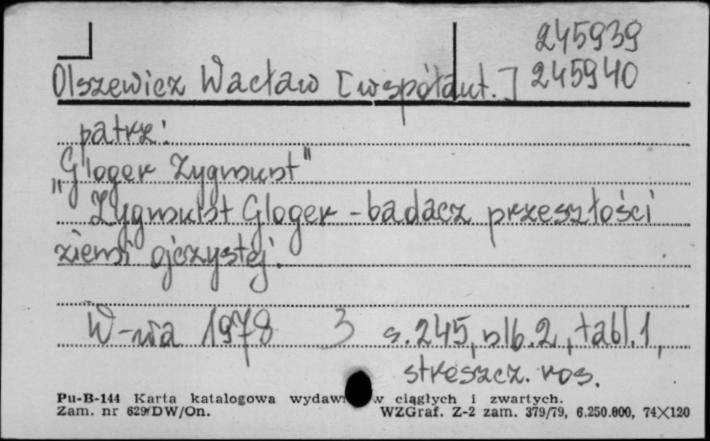 245939
Olszewicz Wacław [współaut.] 245940
patrz:
„Gloger Zygmunt"
Zygmunt Gloger - badacz przeszłości
ziemi ojczystej.
W-wa 1978 3 s. 245, nlb. 2, tabl. 1,
streszcz. ros.
Pu-B-144 Karta katalogowa wydawn w ciągłych i zwartych.
Zam. nr 629/DW/On. WZGraf. Z-2 zam. 379/79, 6.250.000, 74×120